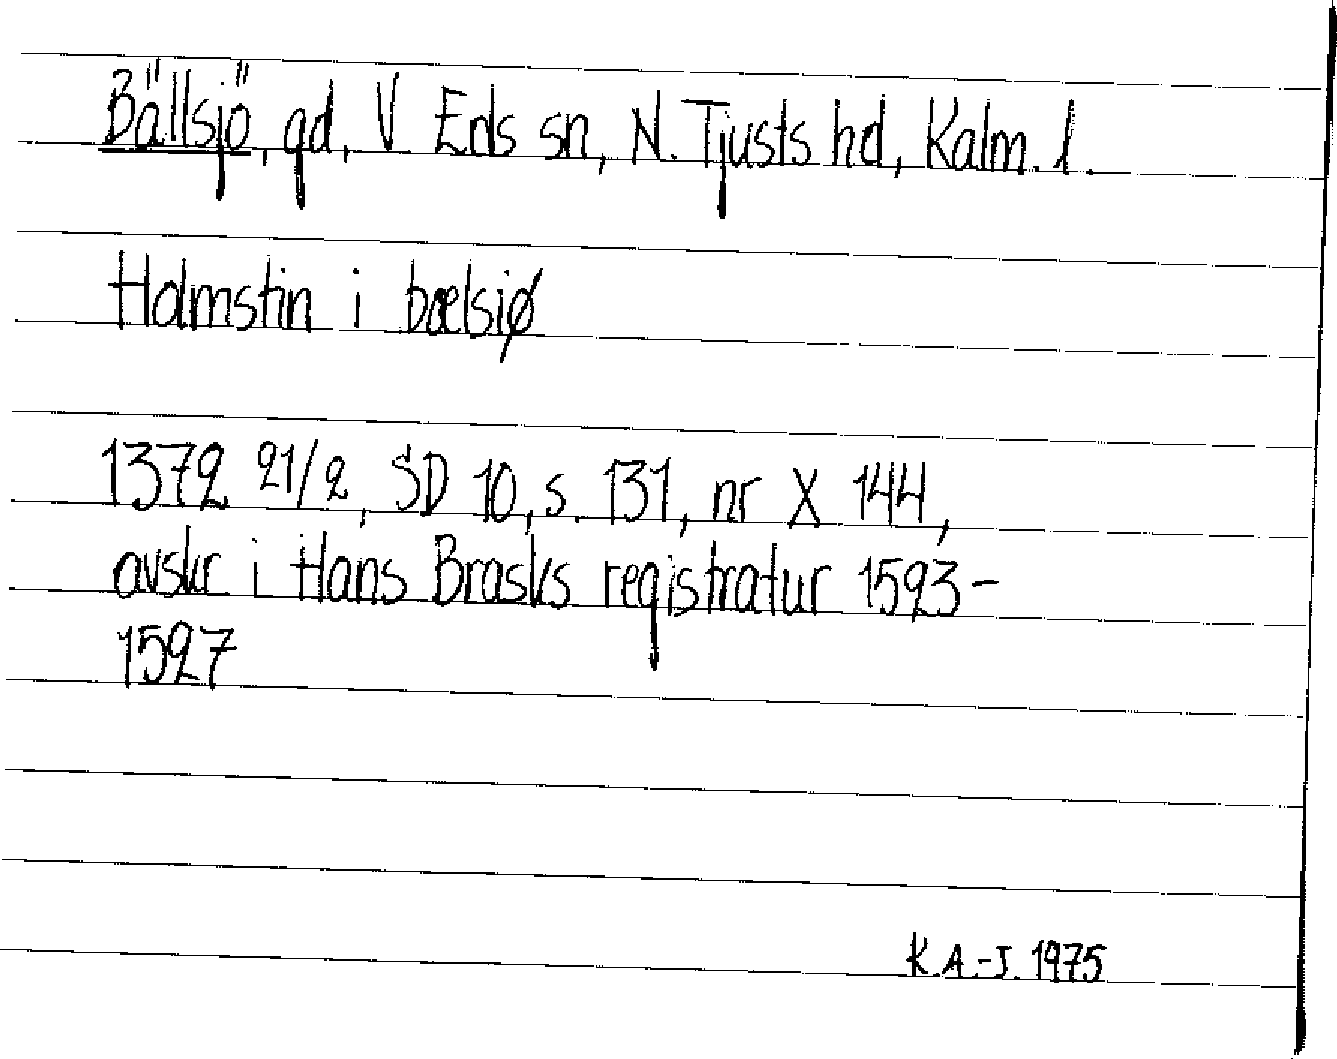 Bällsjö, gd, V. Eds sn, N. Tjusts hd, Kalm. l.
Holmstin i bælsiø
1372 21/2, SD 10, s. 131, nr X 144,
avskr i Hans Brasks registratur 1523-
1527
K.A.-J. 1975